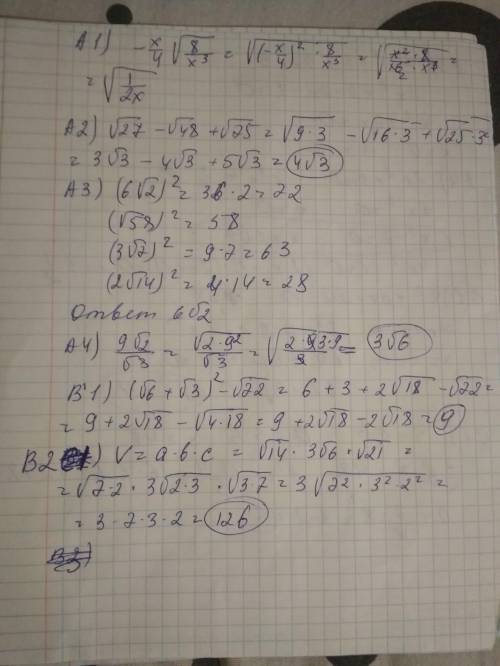 А1) -x/4 √(8/x³) = √((-x/4)² · 8/x³) = √(x² · 8 / 16 · x³) =
= √(1/2x)
А2) √27 - √48 + √75 = √(9·3) - √(16·3) + √(25·3) =
= 3√3 - 4√3 + 5√3 = 4√3
А3) (6√2)² = 36 · 2 = 72
(√58)² = 58
(3√7)² = 9·7 = 63
(2√14)² = 4·14 = 28
Ответ 6√2
А4) 9√2/√3 = √(2·9²)/√3 = = 3√6
В1) (√6 + √3)² - √72 = 6 + 3 + 2√18 - √72 =
= 9 + 2√18 - √(4·18) = 9 + 2√18 - 2√18 = 9
В2) V = a·b·c = √14 · 3√6 · √21 =
= √(7·2) · 3√(2·3) · √(3·7) = 3√(7² · 3² · 2²) =
= 3 · 7 · 3 · 2 = 126